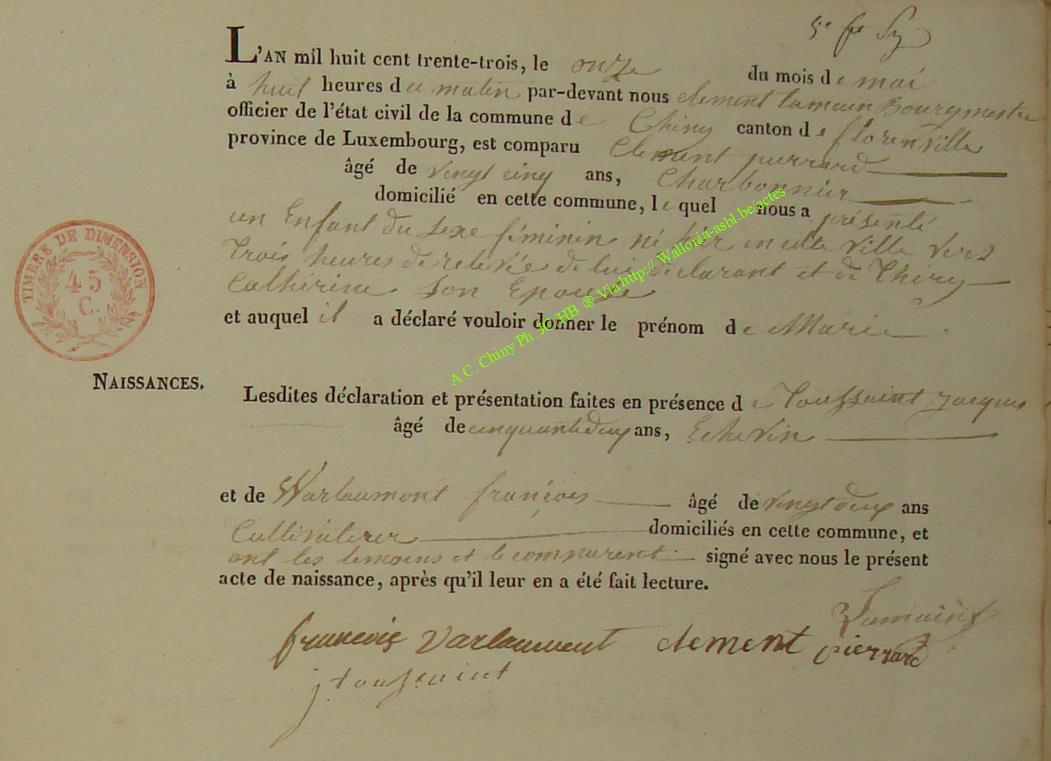 5e fe
L'AN mil huit cent trente-trois, le onze du mois de mai
à huit heures du matin par-devant nous Clement Lamain Bourgmestre
officier de l'état civil de la commune de Chiny canton de florenville
province de Luxembourg, est comparu Clement pierrard
âgé de vingt cinq ans, Charbonnier
domicilié en cette commune, le quel nous a présenté
un Enfant du sexe féminin né hier en cette ville vers
Trois heures de relevée de lui déclarant et de Thiry
Cathérine Son Epouse
et auquel il a déclaré vouloir donner le prénom de Marie
TIMBRE DE DIMENSION
45
C.
NAISSANCES.
Lesdites déclaration et présentation faites en présence de Toussaint Jacques
âgé de cinquante deux ans, Echevin
et de Warlaumont françois âgé de vingt deux ans
Cultivateur domiciliés en cette commune, et
ont les temoins et le comparent signé avec nous le présent
acte de naissance, après qu'il leur en a été fait lecture.
Lamain
francois Varlaumont clement pierrard
j toussaint
A.C. Chiny Ph. JC HB ® Via http:// Wallonia-asbl.be/actes